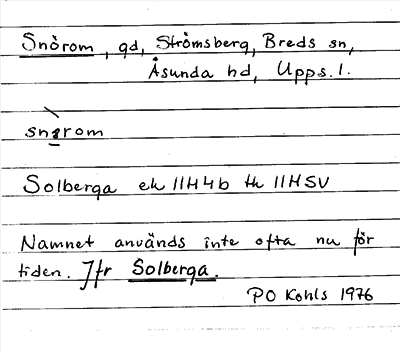 Snörom, gd, Strömsberg, Breds sn,
Åsunda hd, Upps. l.
Solberga ek 11H4b tk 11HSV
Namnet används inte ofta nu för
tiden. Jfr Solberga.
PO Kohls 1976